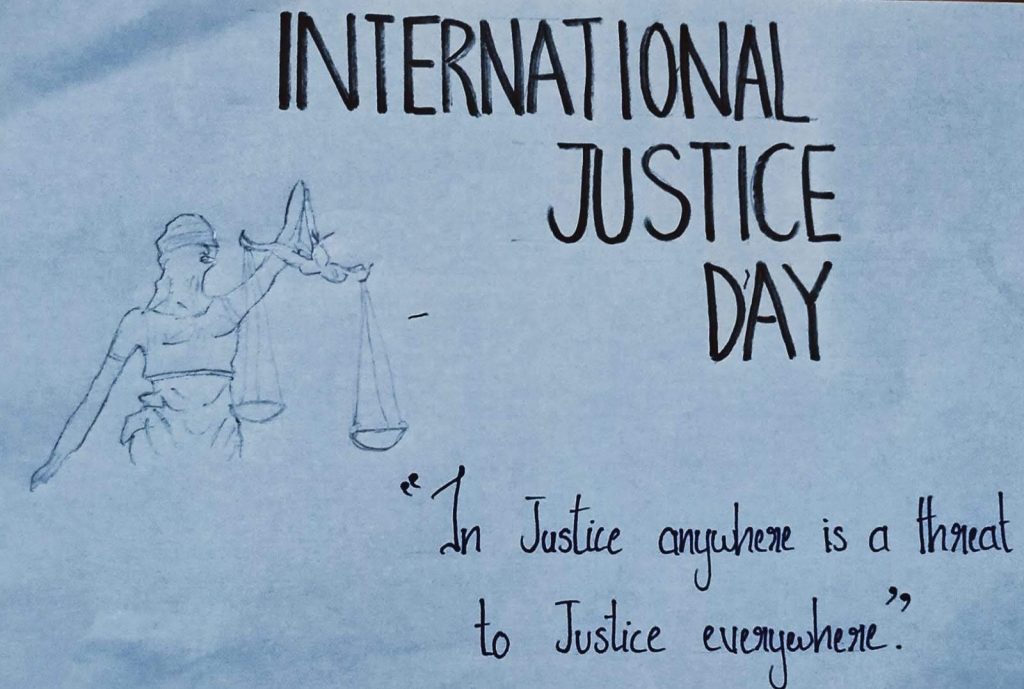 INTERNATIONAL
JUSTICE
DAY
“In Justice anywhere is a threat
to Justice everywhere.”